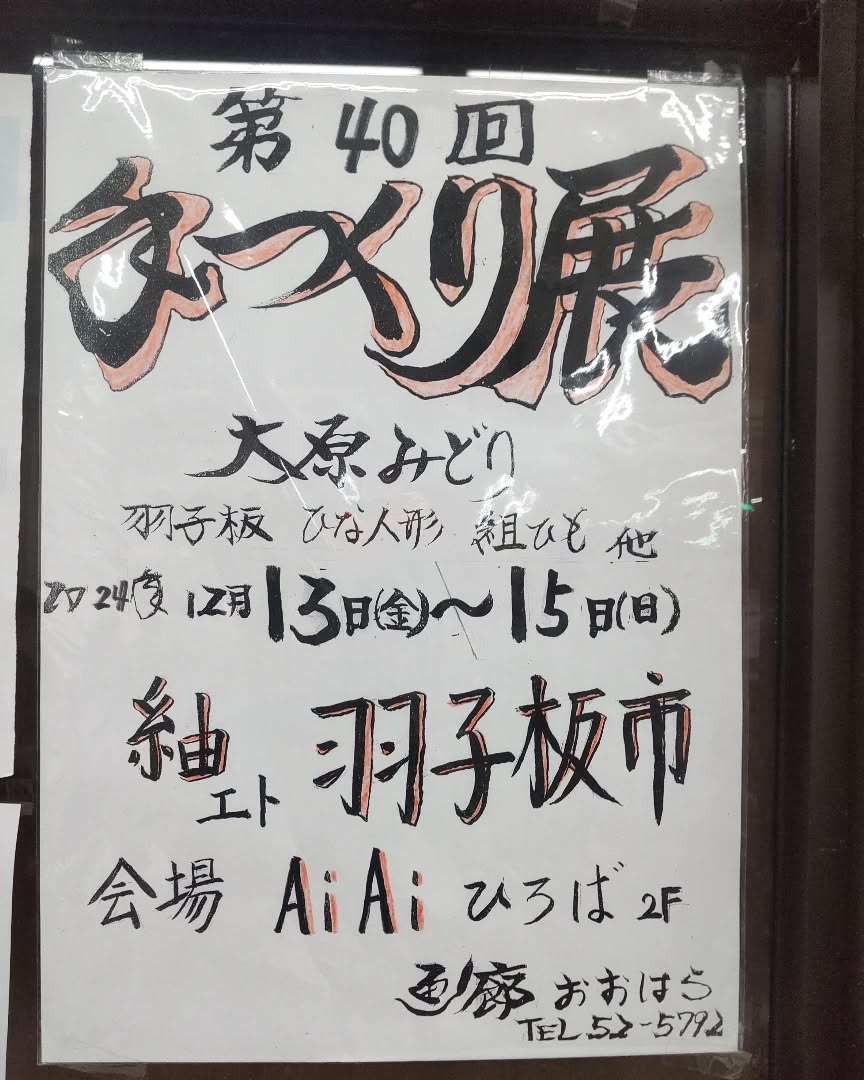 第40回
手づくり展
大原みどり
羽子板 ひな人形 組ひも 他
2024年 12月13日(金)〜15日(日)
紬エト 羽子板市
会場 AiAi ひろば 2F
画廊 おおはら
TEL 52-5792